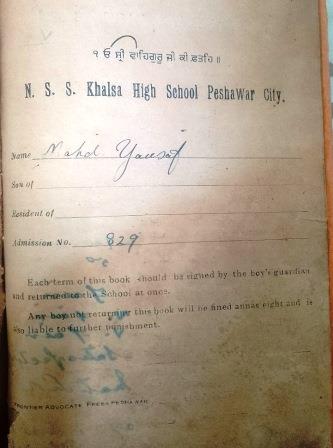 ੧ ਓ ਸ੍ਰੀ ਵਾਹਿਗੁਰੂ ਜੀ ਕੀ ਫ਼ਤਹਿ॥
N. S. S. Khalsa High School Peshawar City.
Name Mohd Yousaf
Son of
Resident of
Admission No. 829
Each term of this book should be signed by the boy's guardian
and returned to the School at once.
Any boy not returning this book will be fined annas eight and is
also liable to further punishment.
FRONTIER ADVOCATE PRESS PESHAWAR